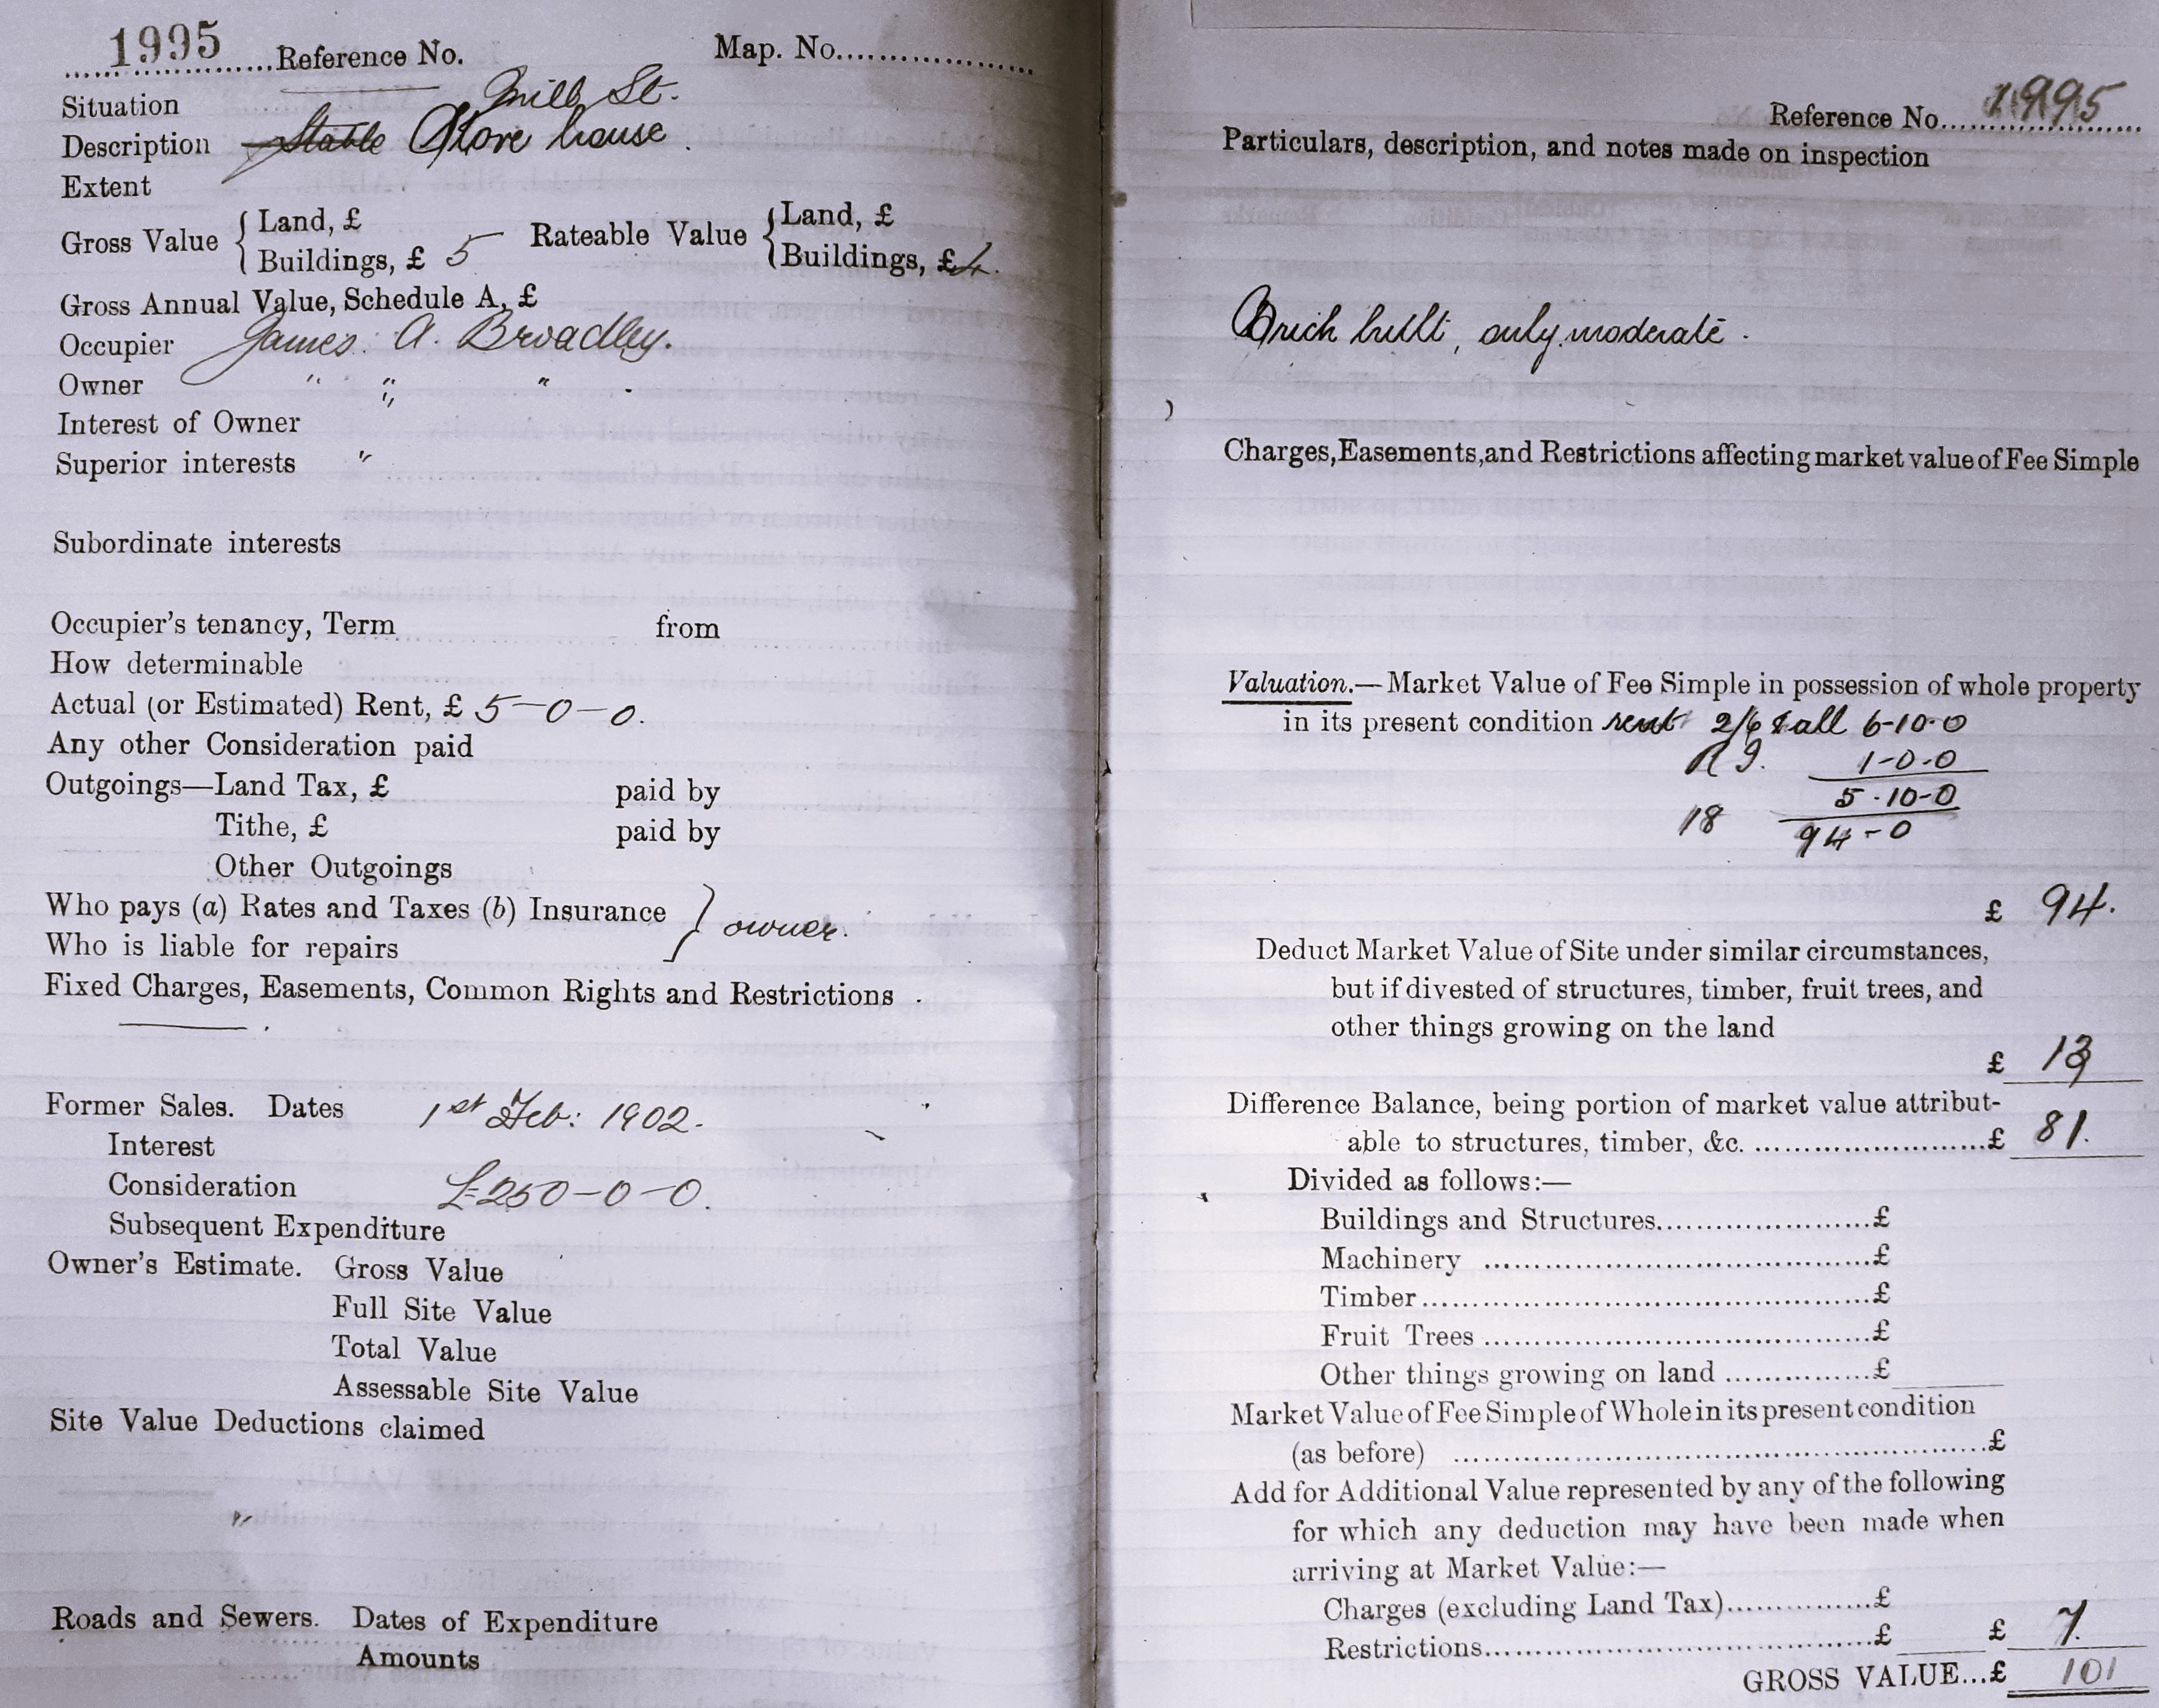 1995 Reference No. Map. No.
Situation Mill St.
Description Stable Store house.
Extent
Gross Value { Land, £ Rateable Value { Land, £
Buildings, £ 5 Buildings, £ 4.
Gross Annual Value, Schedule A, £
Occupier James. A. Broadley.
Owner " " "
Interest of Owner "
Superior interests "
Subordinate interests
Occupier's tenancy, Term from
How determinable
Actual (or Estimated) Rent, £ 5-0-0.
Any other Consideration paid
Outgoings—Land Tax, £ paid by
Tithe, £ paid by
Other Outgoings
Who pays (a) Rates and Taxes (b) Insurance } owner.
Who is liable for repairs
Fixed Charges, Easements, Common Rights and Restrictions
Former Sales. Dates 1st Feb: 1902.
Interest
Consideration £250-0-0.
Subsequent Expenditure
Owner's Estimate. Gross Value
Full Site Value
Total Value
Assessable Site Value
Site Value Deductions claimed
Roads and Sewers. Dates of Expenditure
Amounts
Reference No. 1995
Particulars, description, and notes made on inspection
Brick built, only moderate.
Charges, Easements, and Restrictions affecting market value of Fee Simple
Valuation.—Market Value of Fee Simple in possession of whole property
in its present condition rent 2/6 & all 6-10-0
1-0-0
5-10-0
18 94-0
£ 94.
Deduct Market Value of Site under similar circumstances,
but if divested of structures, timber, fruit trees, and
other things growing on the land
£ 13
Difference Balance, being portion of market value attribut-
able to structures, timber, &c. £ 81.
Divided as follows:—
Buildings and Structures £
Machinery £
Timber £
Fruit Trees £
Other things growing on land £
Market Value of Fee Simple of Whole in its present condition
(as before) £
Add for Additional Value represented by any of the following
for which any deduction may have been made when
arriving at Market Value:—
Charges (excluding Land Tax) £
Restrictions £ £ 7.
GROSS VALUE...£ 101